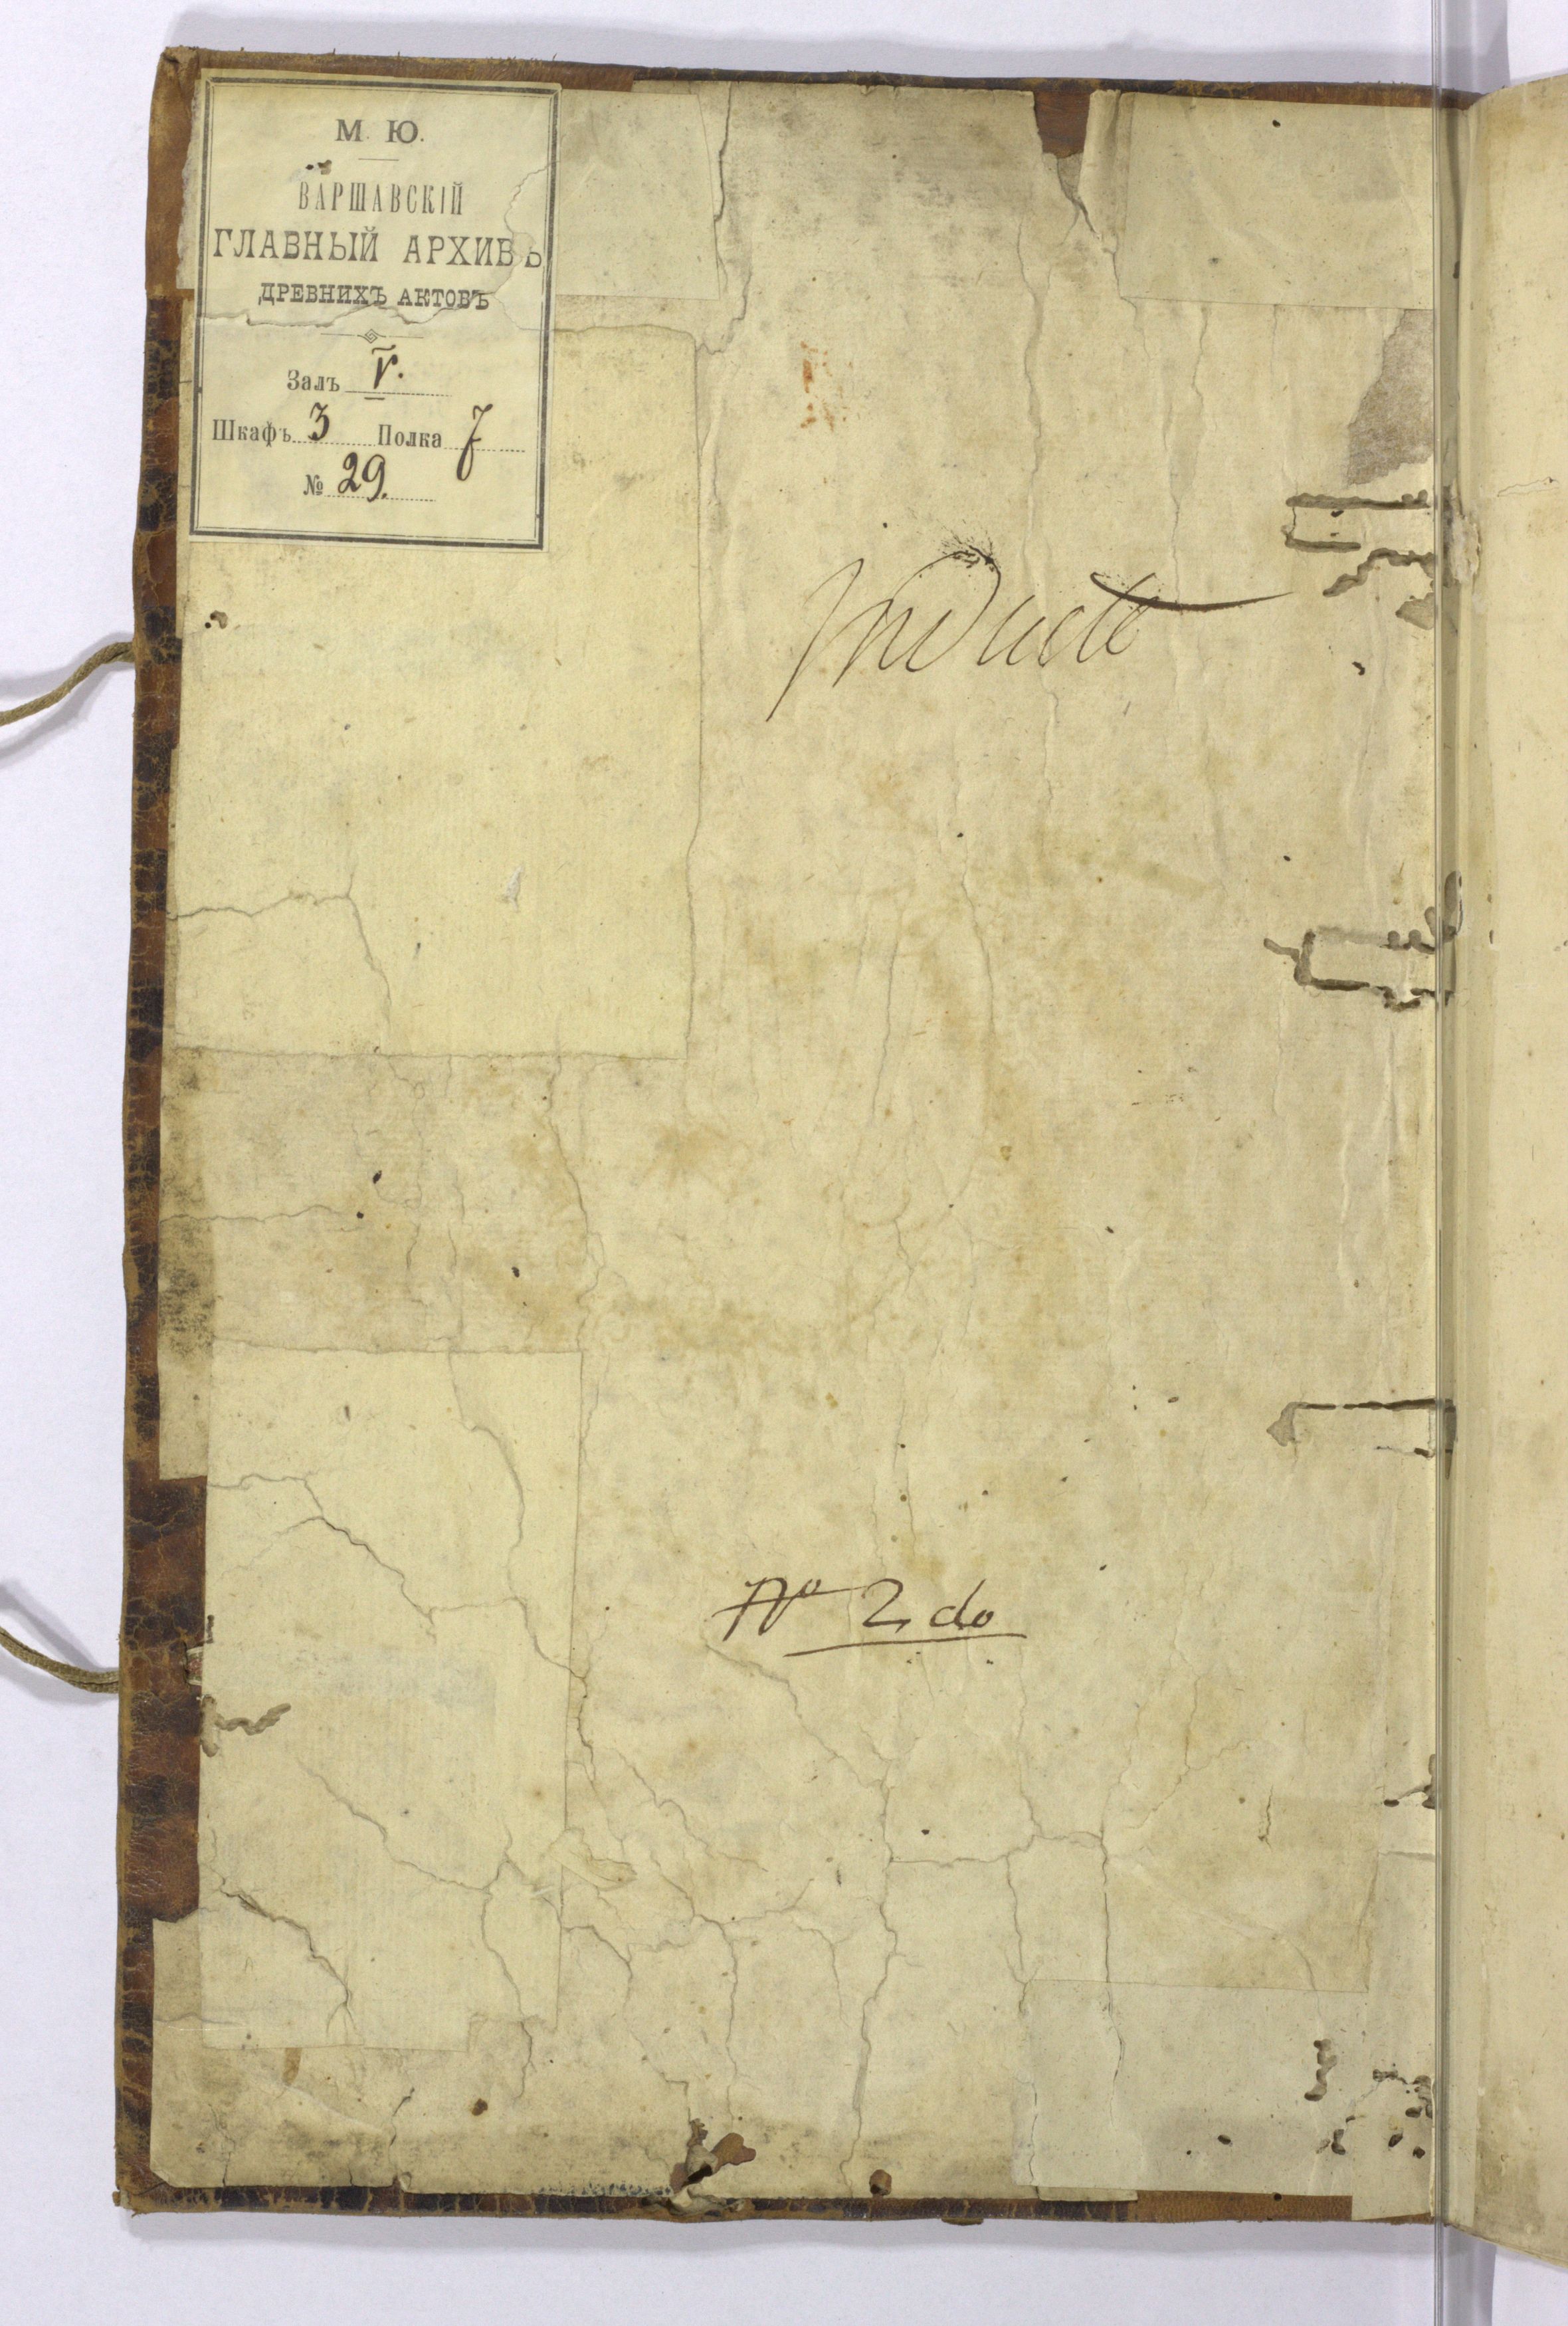 М. Ю.
ВАРШАВСКІЙ
ГЛАВНЫЙ АРХИВЪ
ДРЕВНИХЪ АКТОВЪ
Залъ V.
Шкафъ 3 Полка 7
№ 29.
Inducte
No 2do